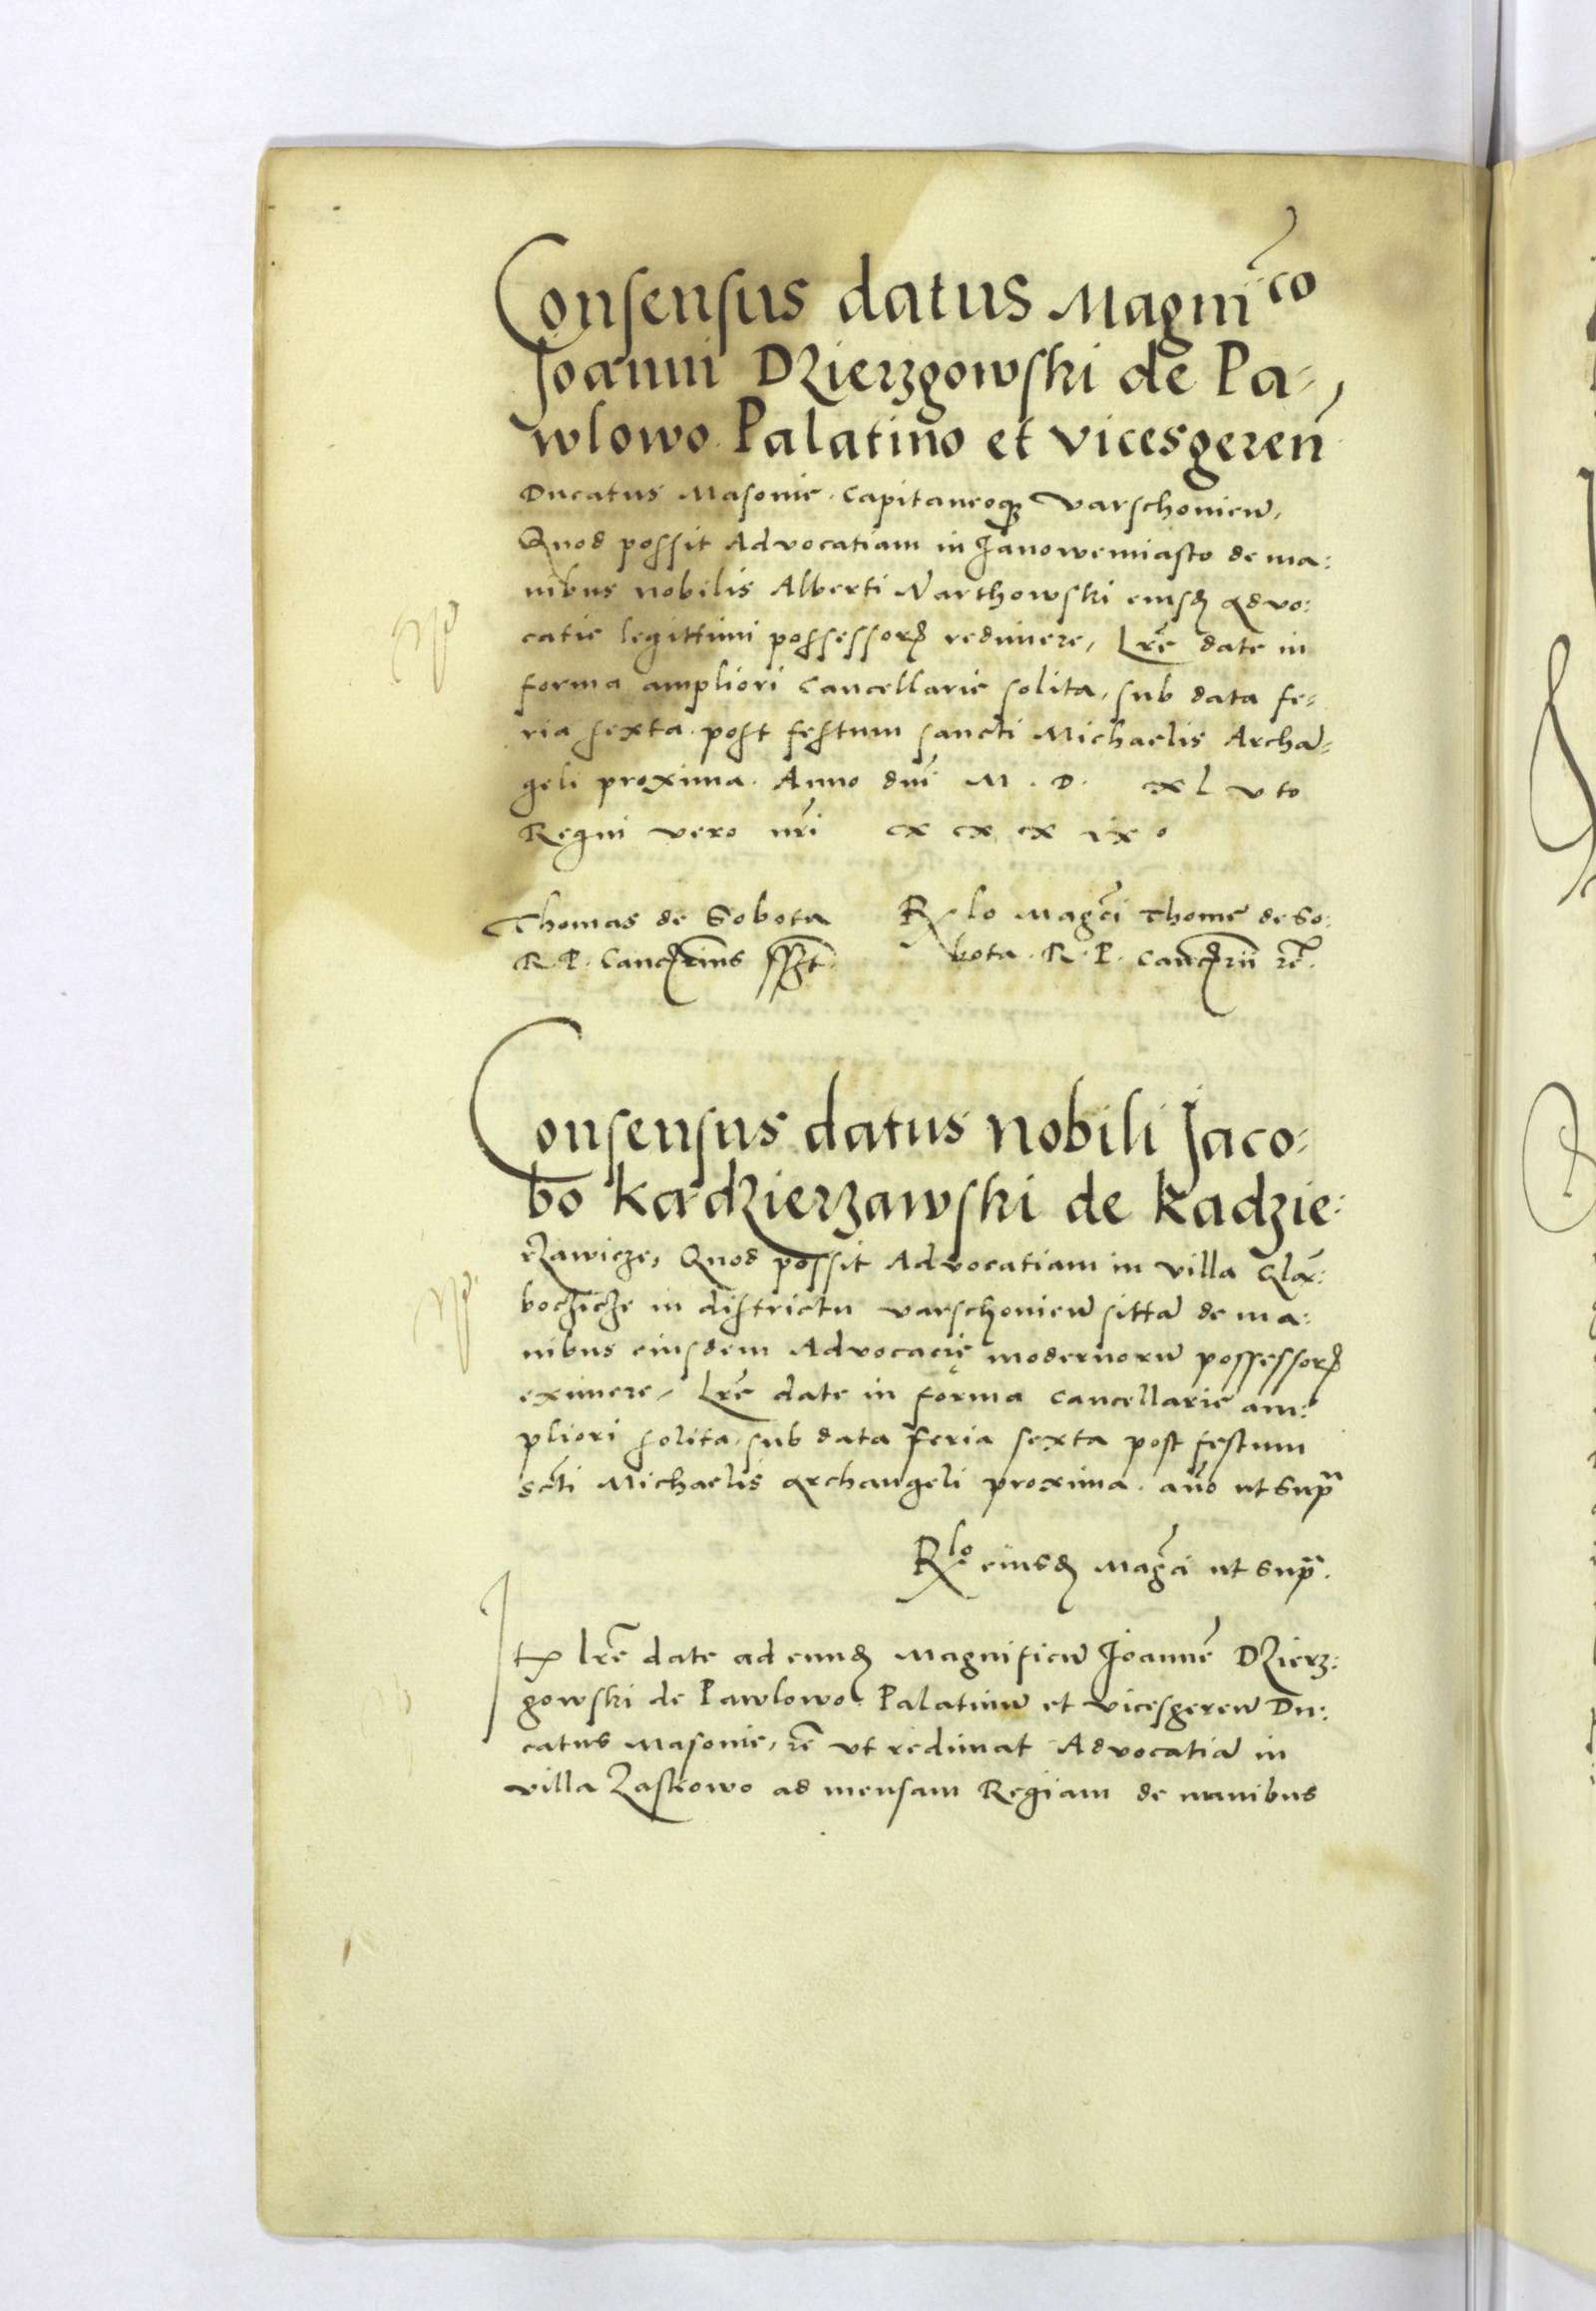 Consensus datus Magnico
Joanni Dzierzgowski de Pa-
wlowo Palatino et vicesgeren̄
Ducatus Masovie. Capitaneoqȝ Varschovien̄,
Quod possit Advocatiam in Janowemiasto de ma:
nibus nobilis Alberti Narthowski eiusd̄ advo:
catie legittimi possessorꝭ redimere, Lrē date in
forma ampliori Cancellarie solita, sub data fe-
ria sexta post festum sancti Michaelis Archā-
geli proxima. Anno dnī M. D. XL vto
Regni vero nr̄i X X X ix o
Thomas de Sobota
R. P. Cancꝭrius sszt.
Rlo Magci Thome de So:
bota. R. P. Cancꝭrii rē.
Consensus datus nobili Jaco:
bo Kadzierzawski de Kadzie:
rzawicze, Quod possit Advocatiam in villa Glā:
bocziche in districtu varschovien̄ sittā de ma:
nibus eiusdem Advocacię modernorū possessorꝭ
eximere, Lrē date in forma Cancellarie am:
pliori solita, sub data feria sexta post festum
scti Michaelis Archangeli proxima. an̄o ut supra
Rlo eiusd̄ Magci ut supra.
Itē lrē date ad eund̄ Magnificū Joannē Dzierz:
gowski de Pawlowo Palatinū et vicesgeren̄ Du:
catus Masovie, rē ut redimat Advocatiā in
villa Zaskowo ad mensam Regiam de manibus